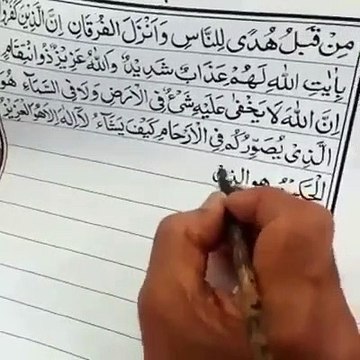 مِنْ قَبْلُ هُدًى لِلنَّاسِ وَاَنْزَلَ الْفُرْقَانَ اِنَّ الَّذِيْنَ كَفَرُوْا
بِاٰيٰتِ اللّٰهِ لَهُمْ عَذَابٌ شَدِيْدٌ وَاللّٰهُ عَزِيْزٌ ذُوانْتِقَامٍ
اِنَّ اللّٰهَ لَا يَخْفٰى عَلَيْهِ شَیْءٌ فِی الْاَرْضِ وَلَا فِی السَّمَآءِ هُوَ
الَّذِیْ يُصَوِّرُكُمْ فِی الْاَرْحَامِ كَيْفَ يَشَآءُ لَآ اِلٰهَ اِلَّا هُوَ الْعَزِيْزُ
الْحَكِيْمُ هو الذی